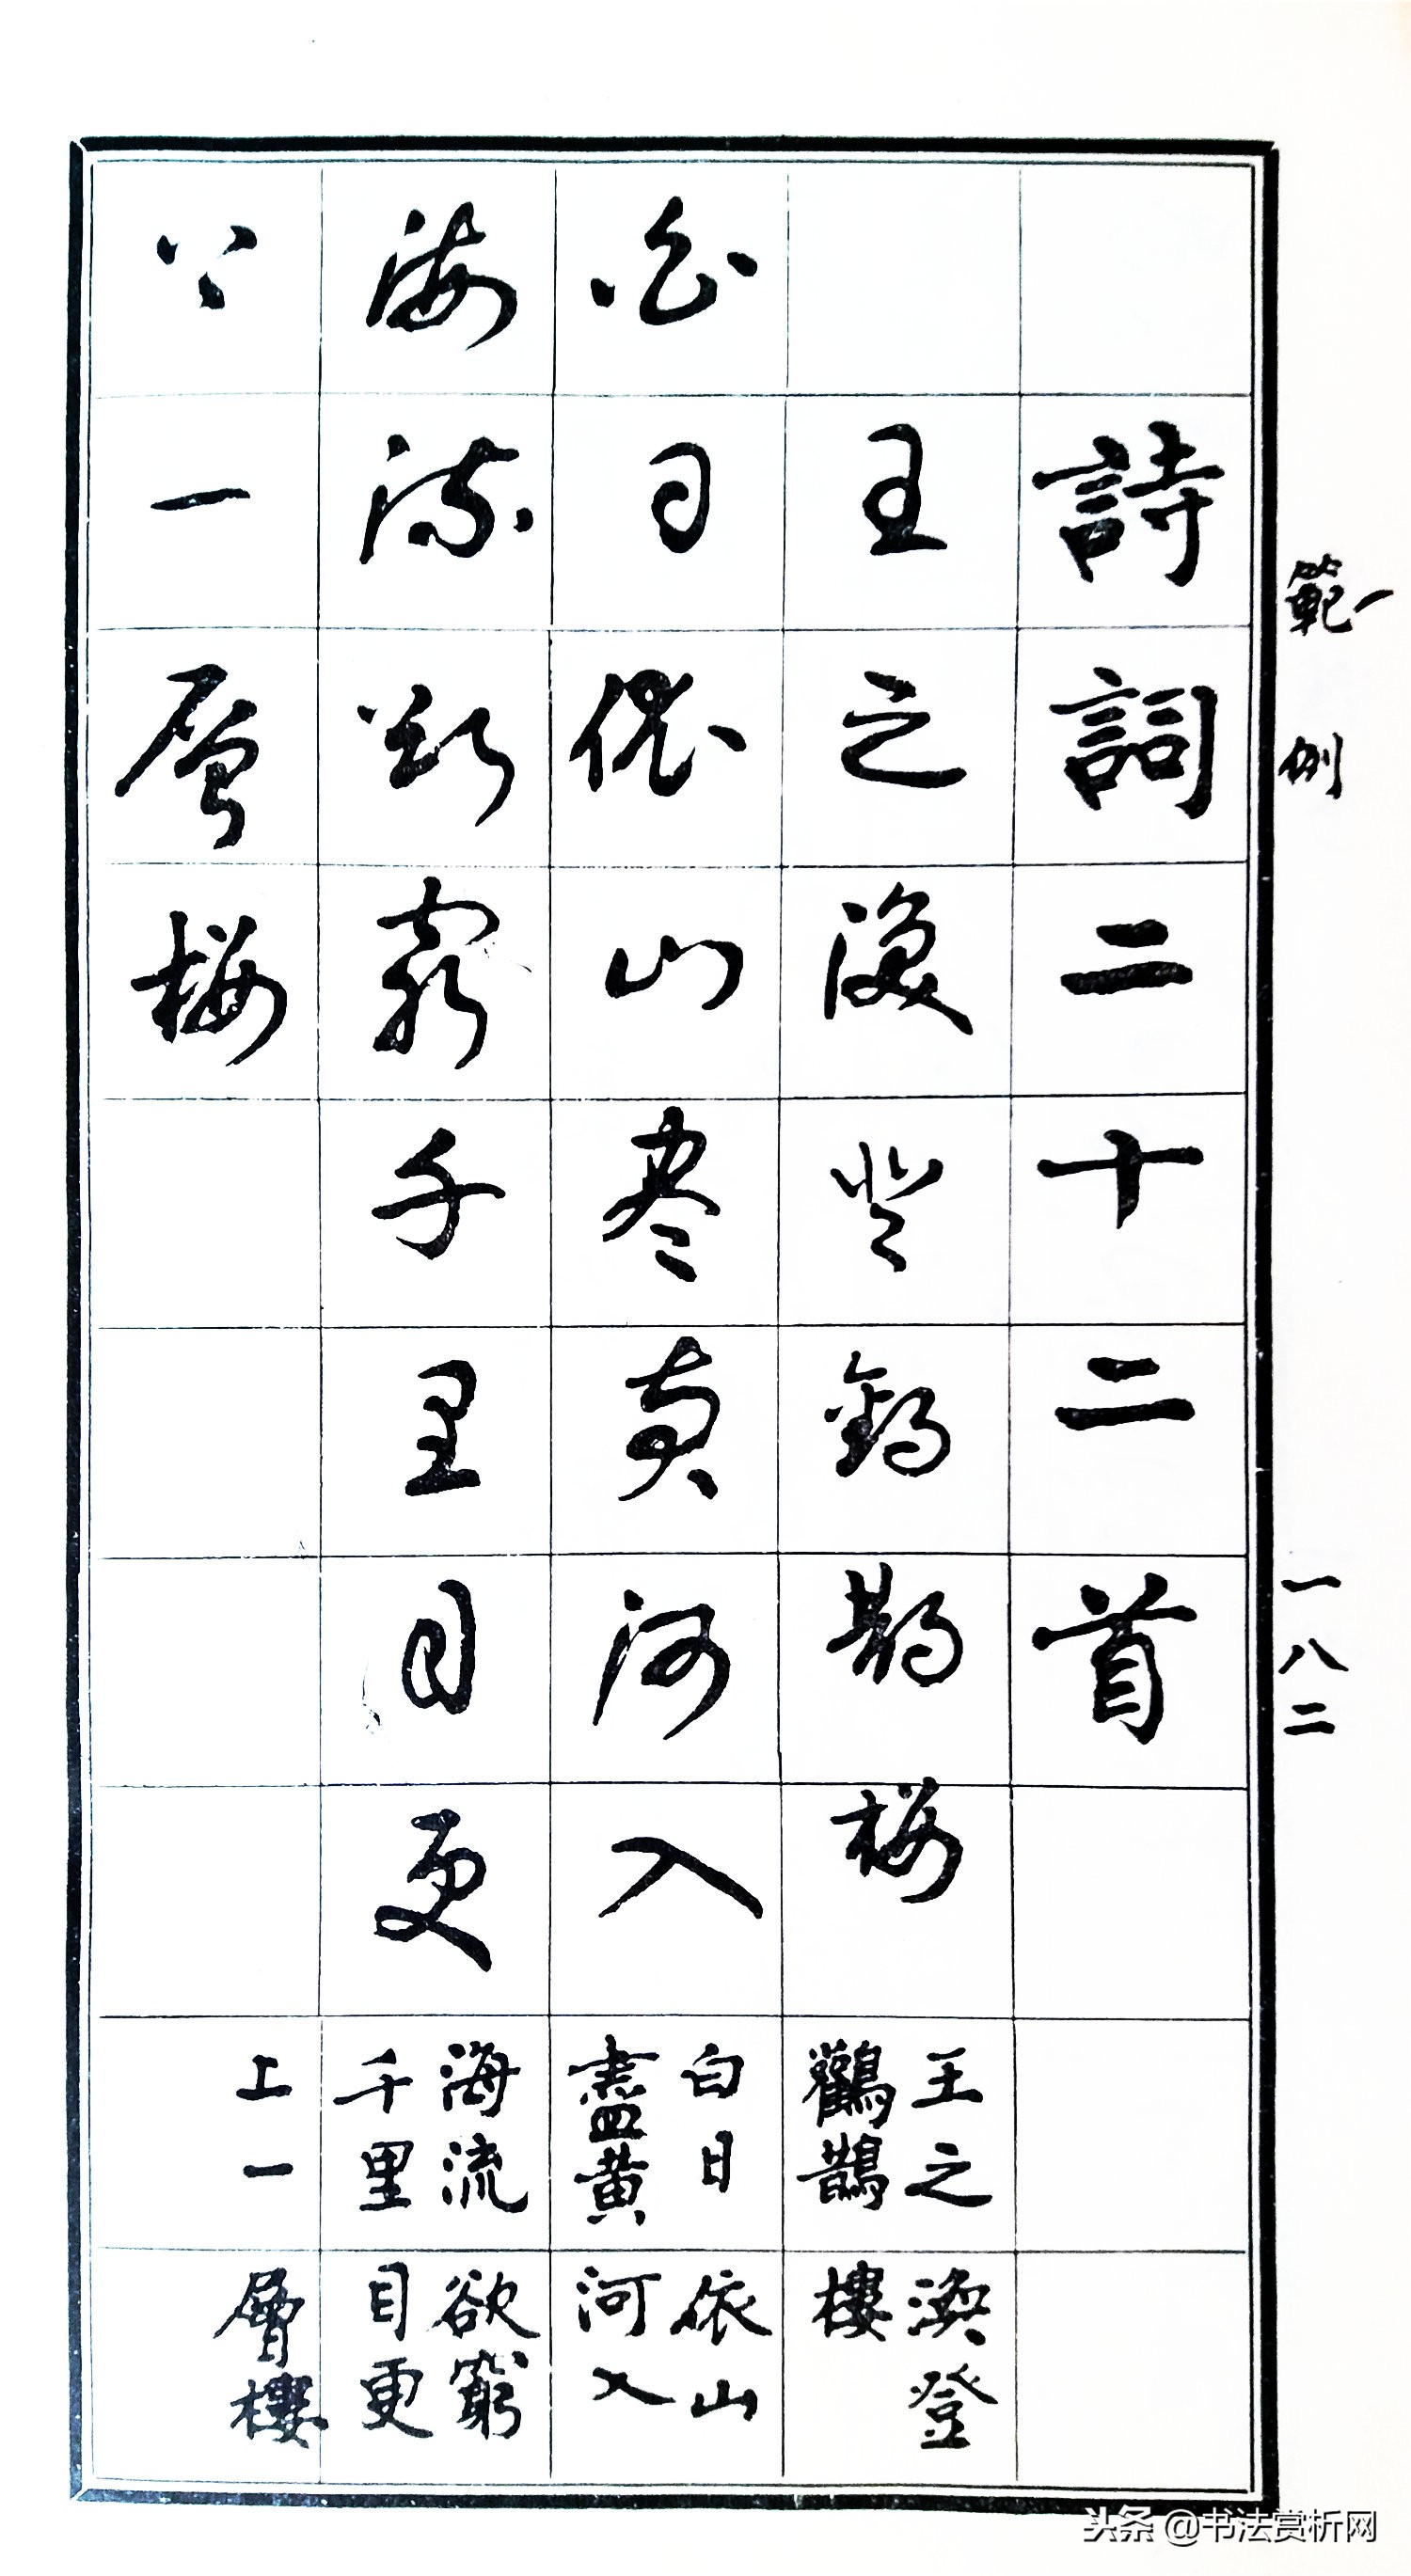 範例
一八二
詩詞二十二首
王之渙登鸛鵲樓
王之渙登
鸛鵲樓
白日依山盡黄河入
白日依山
盡黄河入
海流欲窮千里目更
海流欲窮
千里目更
上一層樓
上一層樓
头条 @书法赏析网